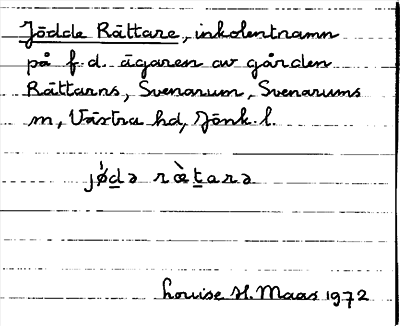 Jödde Rättare, inkolentnamn
på f.d. ägaren av gården
Rättarns, Svenarum, Svenarums
sn, Västra hd, Jönk. l.
jǿdə rä̀tarə
Louise H. Maas 1972